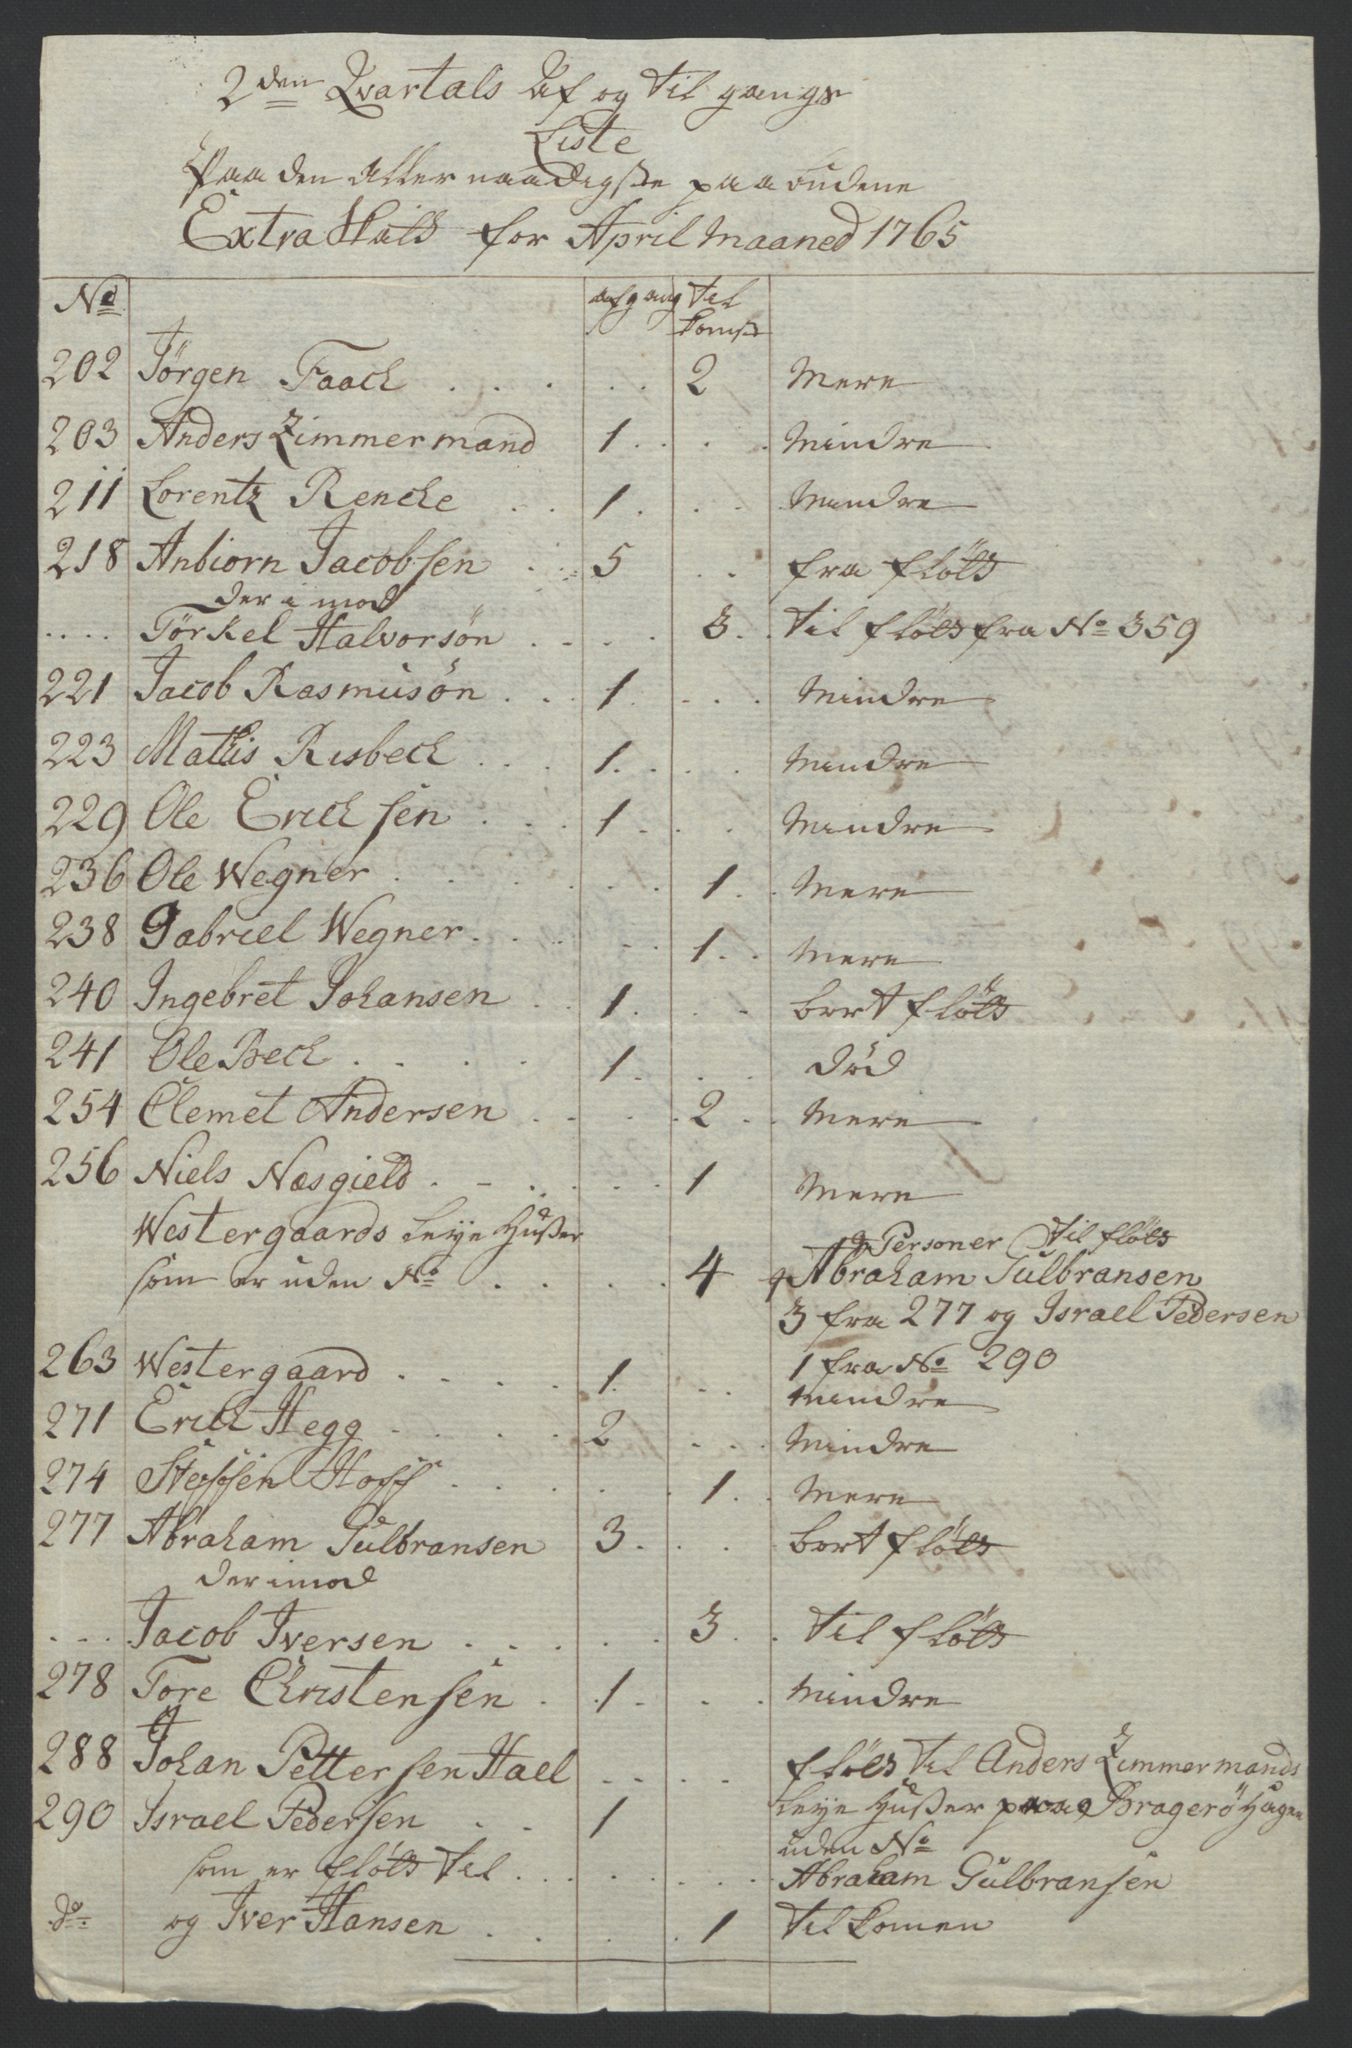 2den Qvartals Af og til gangs
Liste
Paa den Aller naadigste paabudene
Extra Skatt for April Maaned 1765
No afgang Til komst
202 Jörgen Faach . . . . . 2 Mere
203 Anders Zimmermand 1 . . . Mindre
211 Lorentz Rencke . . 1 . . . Mindre
218 Anbiorn Jacobsen . . 5 . . fra flött
der i mod
.... Törkel Halvorsön . . . . 3 . . til flött fra No 359
221 Jacob Rasmusön . . . 1 . . . Mindre
223 Mathis Risbech . . . 1 . . . Mindre
229 Ole Erichsen . . . 1 . . . Mindre
236 Ole Wegner . . . . . . 1 . . Mere
238 Gabriel Wegner . . . . . 1 . . Mere
240 Ingebret Johansen . 1 . . . bort flött
241 Ole Bech . . . . 1 . . . död
254 Clemet Andersen . . . . 2 . . Mere
256 Niels Næsgield . . . . . 1 Mere
Westergaards Leye Husser
4 Personer til flött
som er uden No . . . . 4 Abraham Gulbransen
3 fra 277 og Israel Pedersen
1 fra No 290
263 Westergaard . . . . 1 . . . Mindre
271 Erich Hegg . . . . 2 . . . Mindre
274 Steffen Hoff . . . . . 1 . . Mere
277 Abraham Gulbransen 3 . . . bort flött
der imod
.... Jacob Iversen . . . . . 3 . . til flött
278 Tore Christensen . 1 . . . Mindre
288 Johan Pettersen Hael . . . . flött til Anders Zimmermands
Leye Husser paa Bragerö Hagen
uden No
290 Israel Pedersen . . 1
som er flött til . . . . . . . Abraham Gulbransen
do og Iver Hansen . . . . 1 til komen